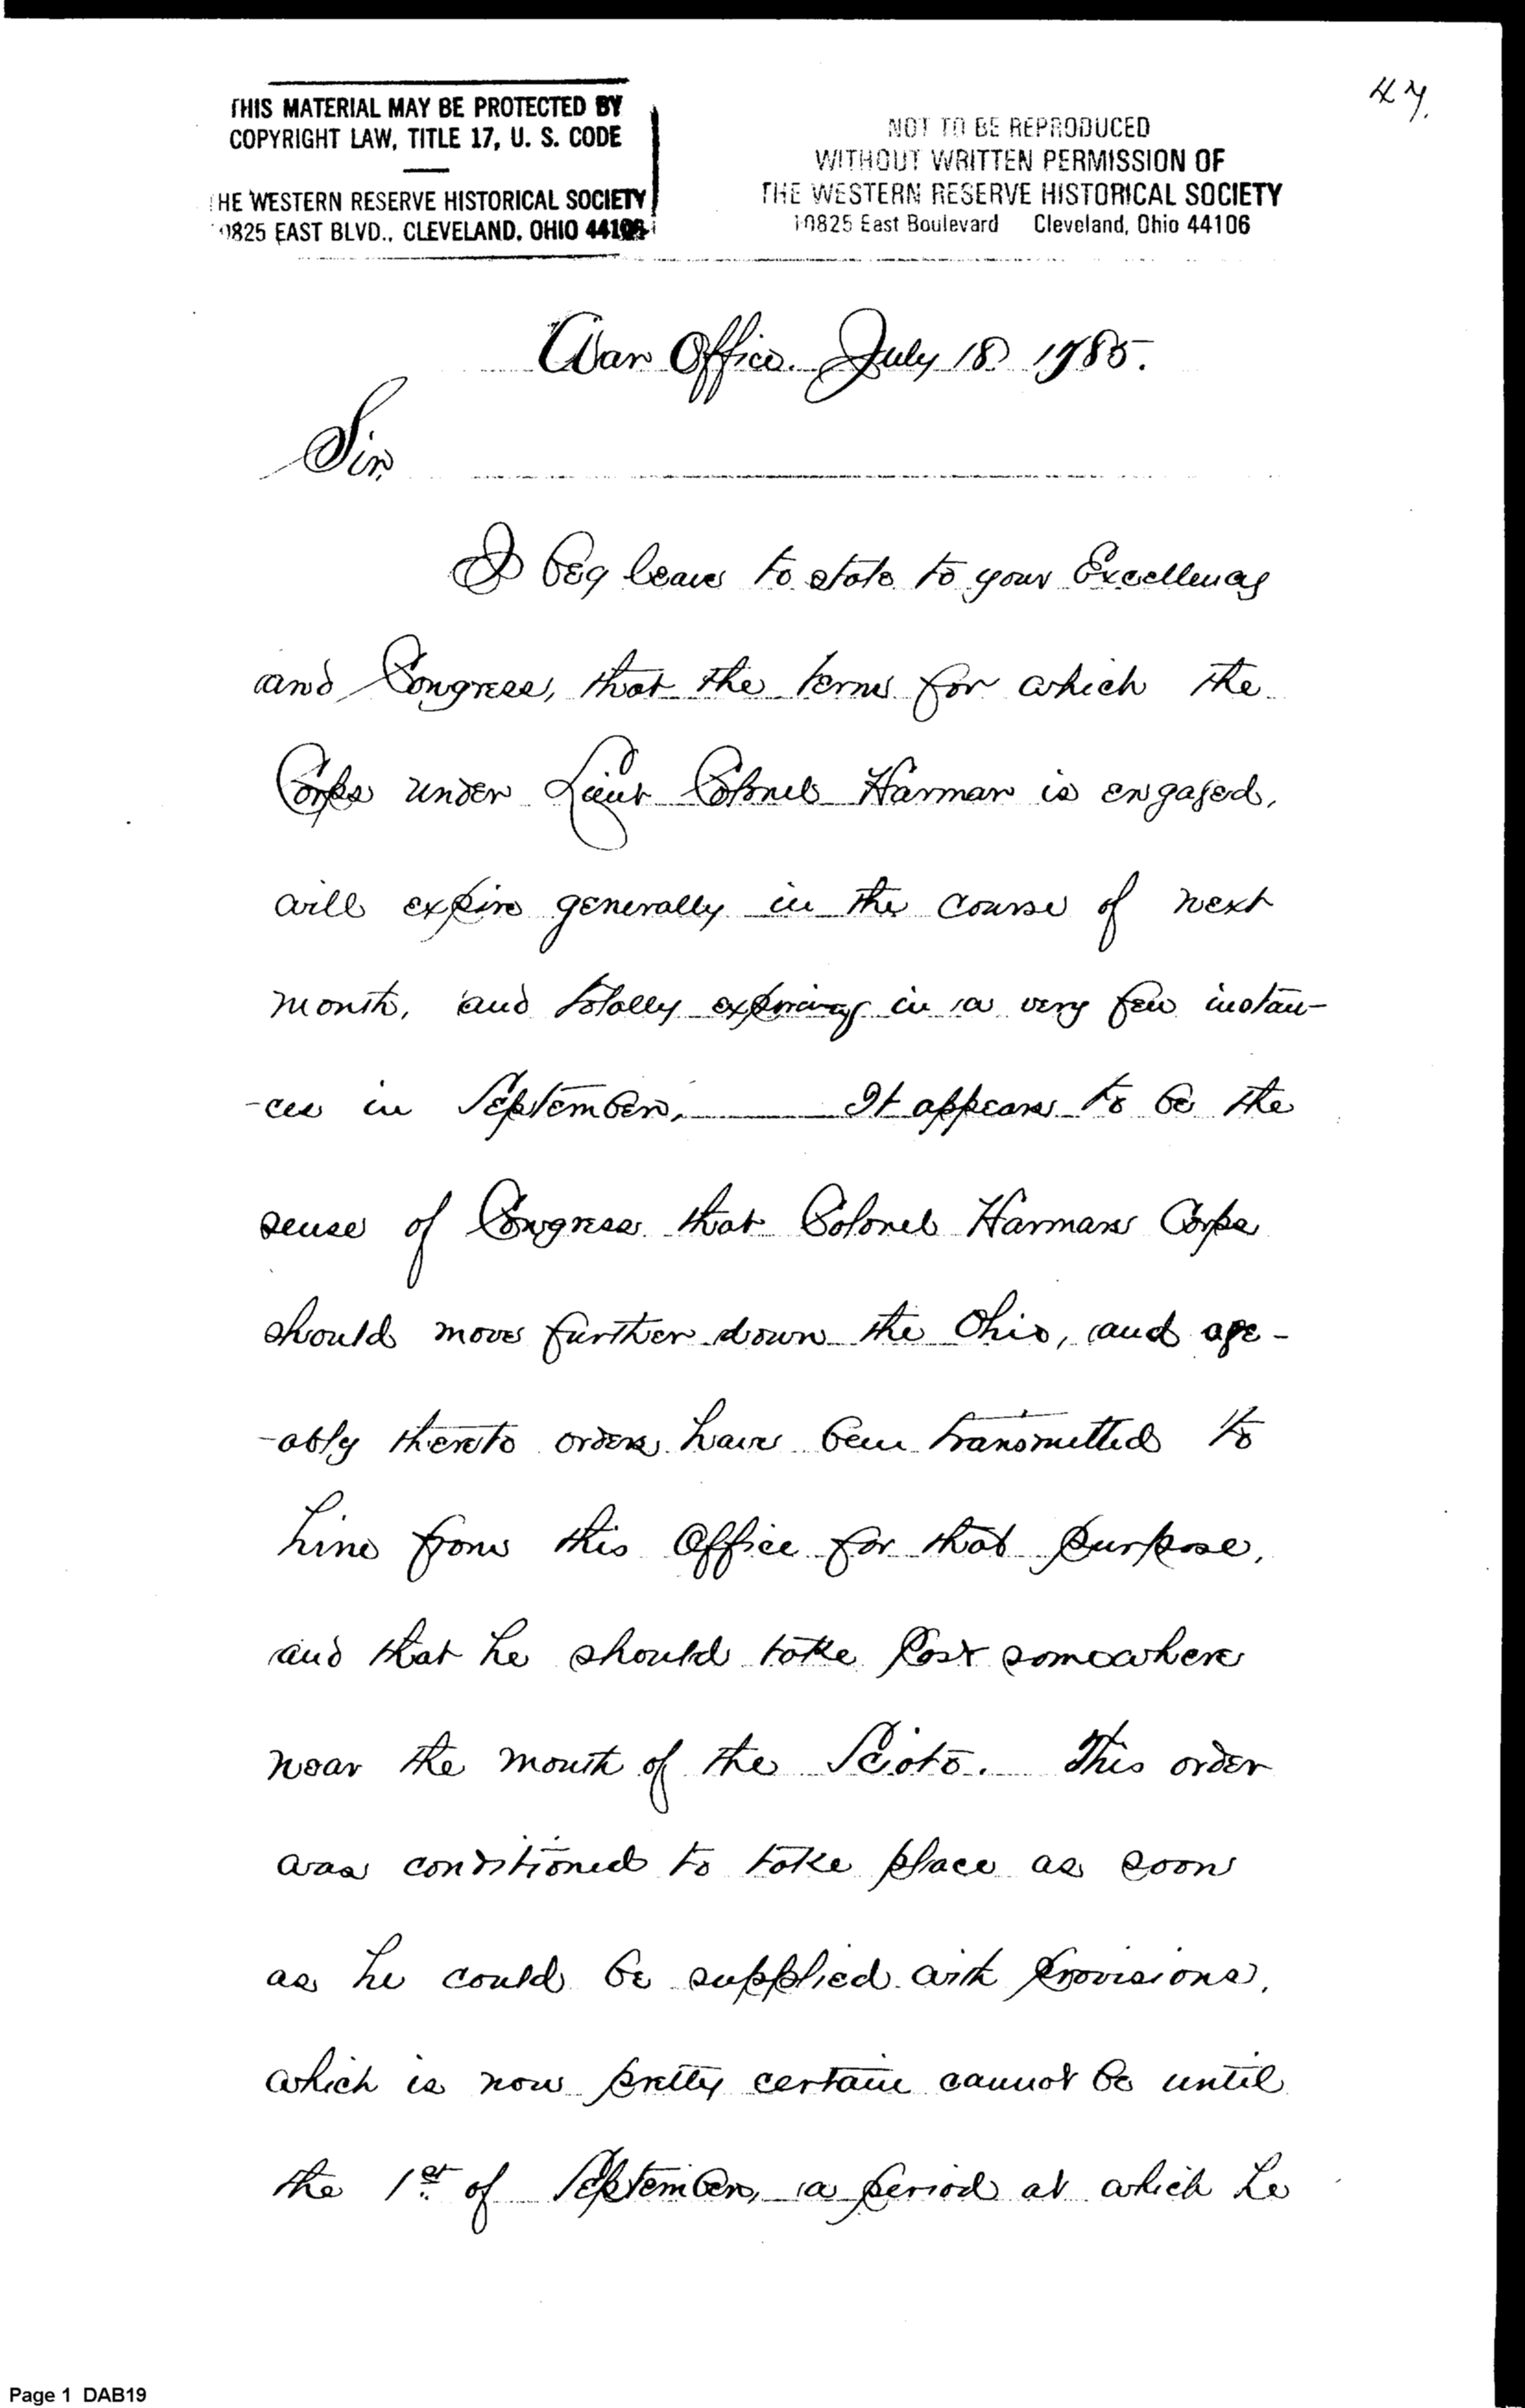 47.
THIS MATERIAL MAY BE PROTECTED BY
COPYRIGHT LAW, TITLE 17, U. S. CODE
THE WESTERN RESERVE HISTORICAL SOCIETY
10825 EAST BLVD., CLEVELAND, OHIO 44106
NOT TO BE REPRODUCED
WITHOUT WRITTEN PERMISSION OF
THE WESTERN RESERVE HISTORICAL SOCIETY
10825 East Boulevard Cleveland, Ohio 44106
War Office. July 18 1785.
Sir
I beg leave to state to your Excellency
and Congress, that the terms for which the
Corps under Lieut Colonel Harmar is engaged,
will expire generally in the course of next
month, and totally expiring in a very few instan-
-ces in September. It appears to be the
sense of Congress that Colonel Harmars Corps
should move further down the Ohio, and age-
-ably thereto orders have been transmitted to
him from this Office for that purpose,
and that he should take Post somewhere
near the mouth of the Scioto. This order
was conditioned to take place as soon
as he could be supplied with provisions,
which is now pretty certain cannot be until
the 1st of September, a period at which he
Page 1 DAB19